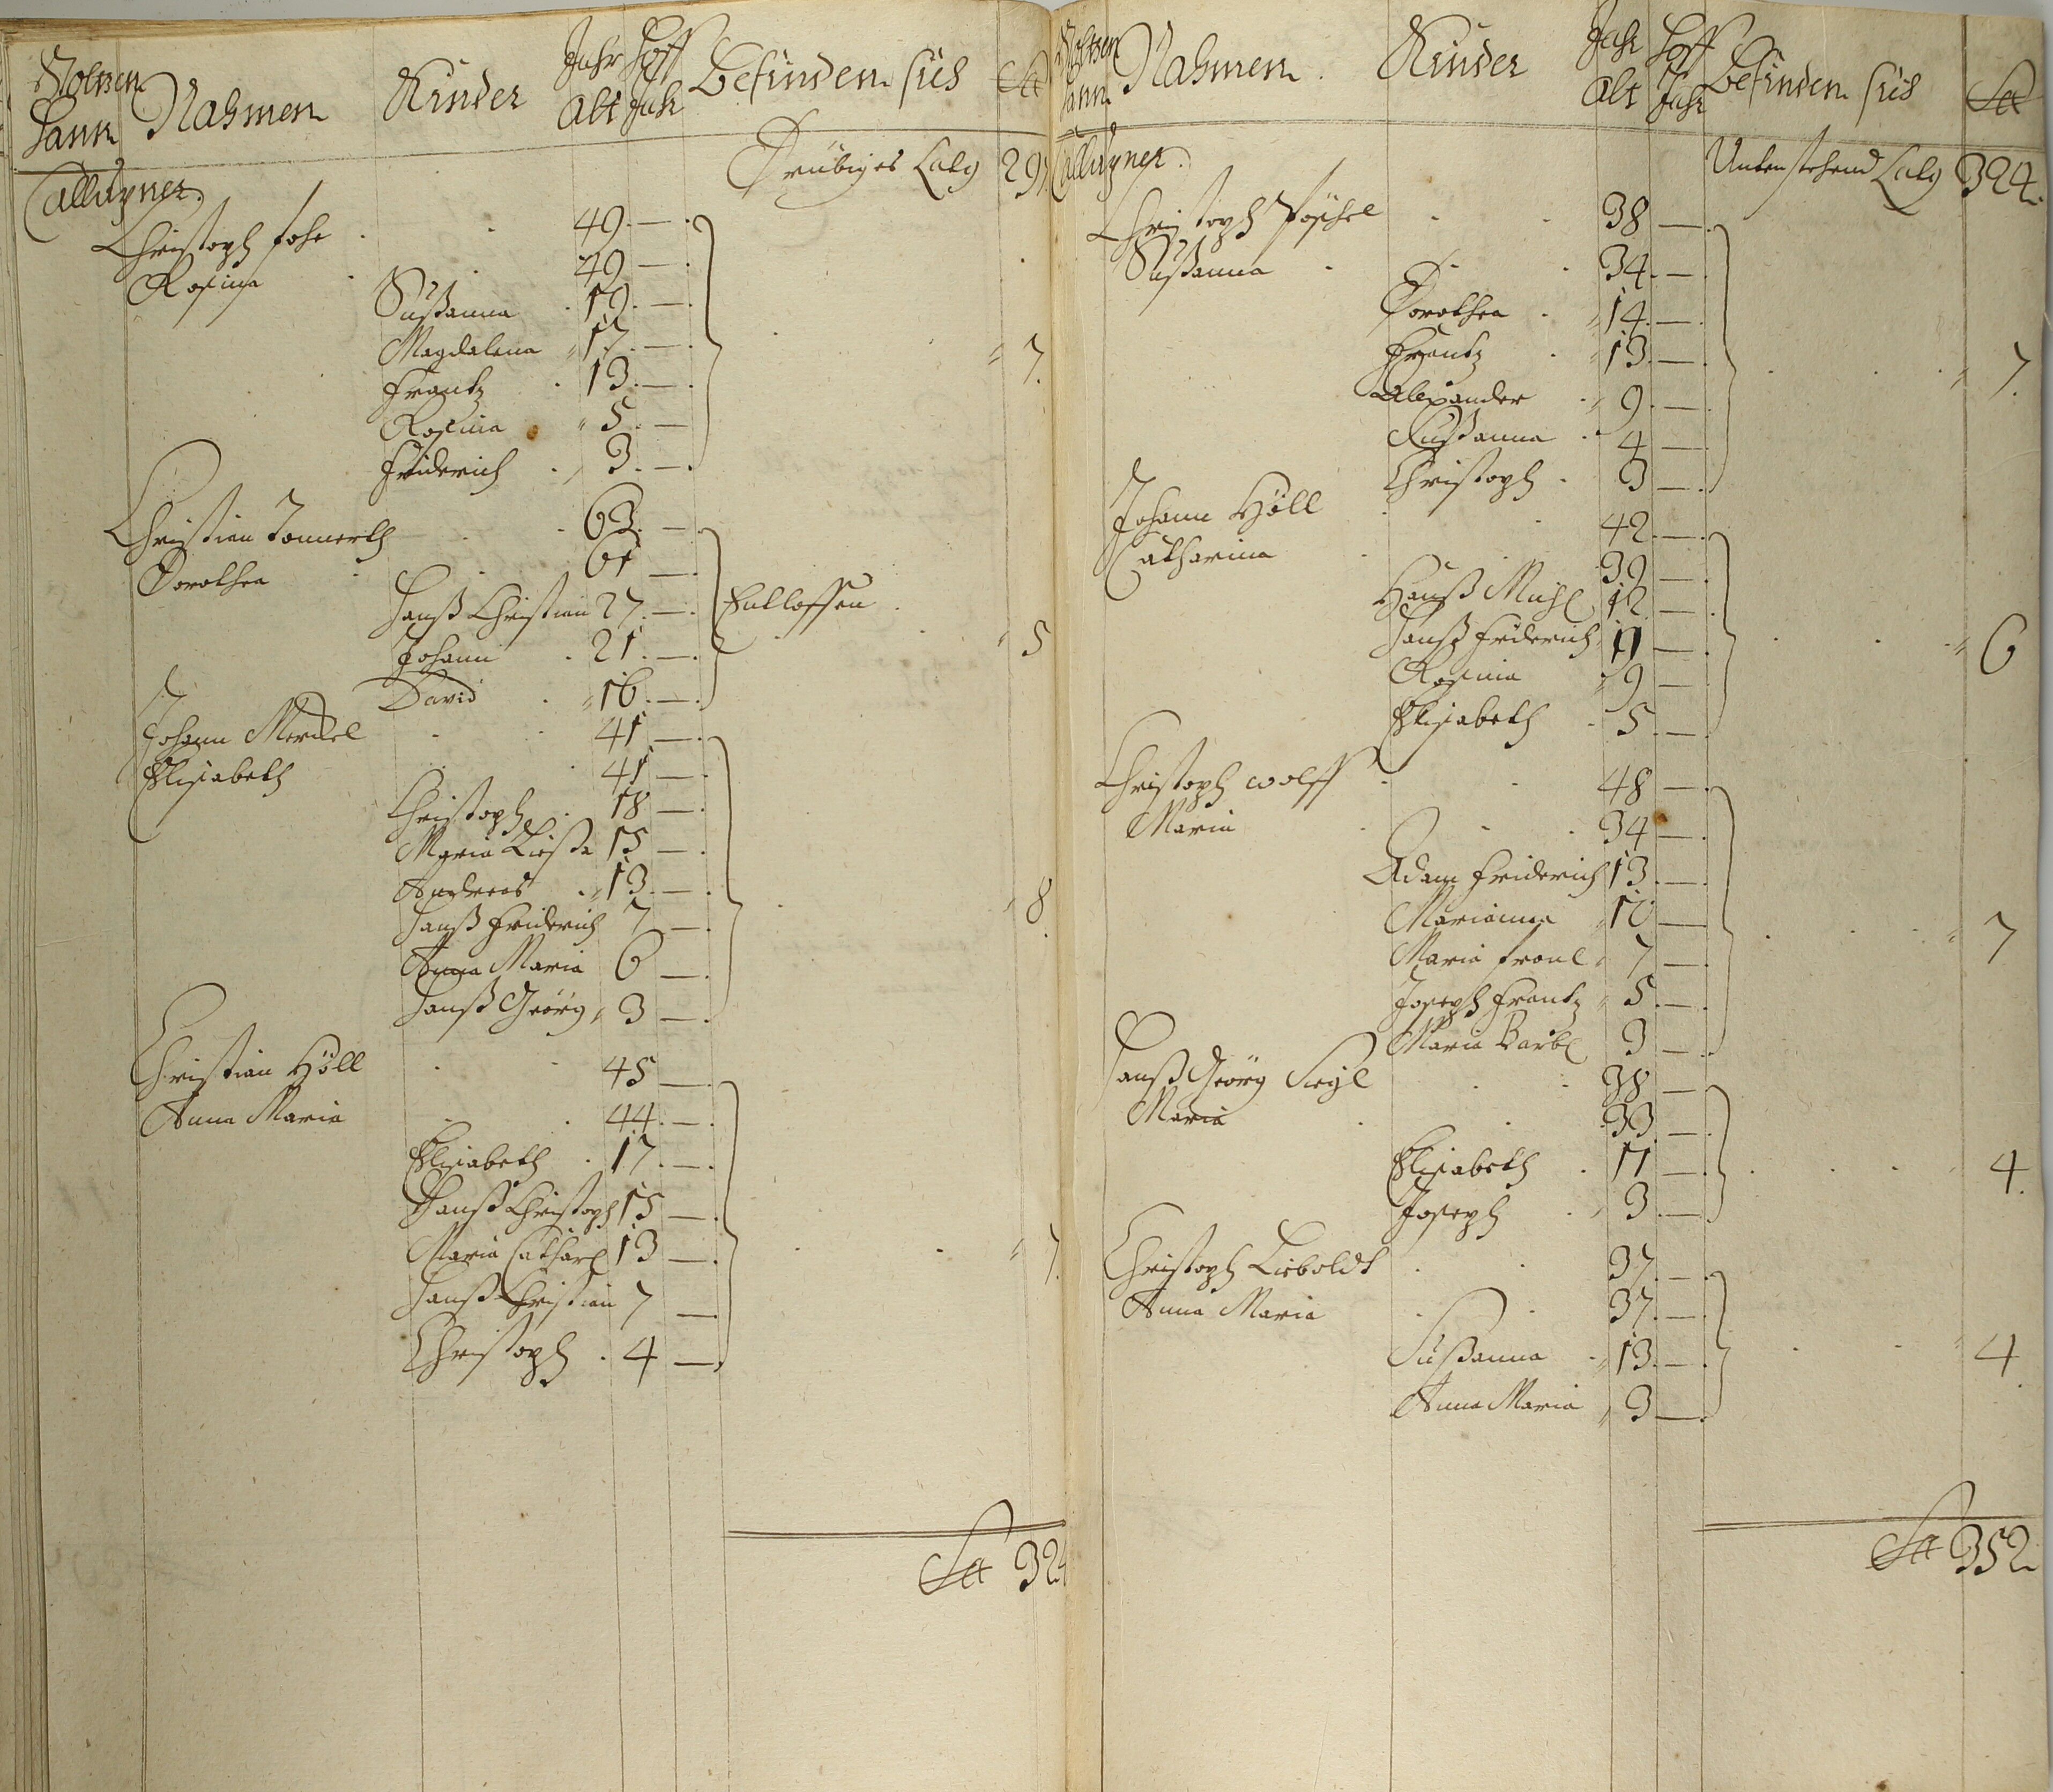 Nahmen Kinder Jahr Alt Hoff Jahr Befinden sich Sa
Callupner.
Drübiges Latg 297.
Christoph 49.
Rosina 49
Sußanna 19.
Magdalena 17.
Frantz 13.
Rosina 5.
Friderich 3.
7.
Christian Tonnerth 63.
Dorothea 61
Hanß Christian 27. Entloffen.
Johann 21.
David 16.
5
Johann 41
Elisabeth 41
Christoph 18
Maria 15
Andreas 13.
Hanß Friderich 7
Anna Maria 6
Hanß Geörg 3
8.
Christian Höll 45
Anna Maria 44.
Elisabeth 17.
Hanß Christoph 15
Maria Cathar 13
Hanß Christian 7
Christoph 4
7.
Sa 324
Nahmen Kinder Jahr Alt Hoff Jahr Befinden sich Sa
Callupner.
Untenstehend Latg 324.
Christoph 38
Sußanna 34.
Dorothea 14.
Frantz 13.
Alexander 9.
Sußanna 4
Christoph 3
7.
Johann Höll 42
Catharina 39
Hanß Mich 12
Hanß Friderich 11
Rosina 9
Elisabeth 5
6
Christoph Wolff 48
Maria 34
Adam Friderich 13
Marianna 10
Maria 7
Joseph Frantz 5
Maria Barb 3
7
Hanß Geörg 38
Maria 33
Elisabeth 11
Joseph 3
4.
Christoph Lieboldt 37.
Anna Maria 37.
Sußanna 13.
Anna Maria 3
4
Sa 352